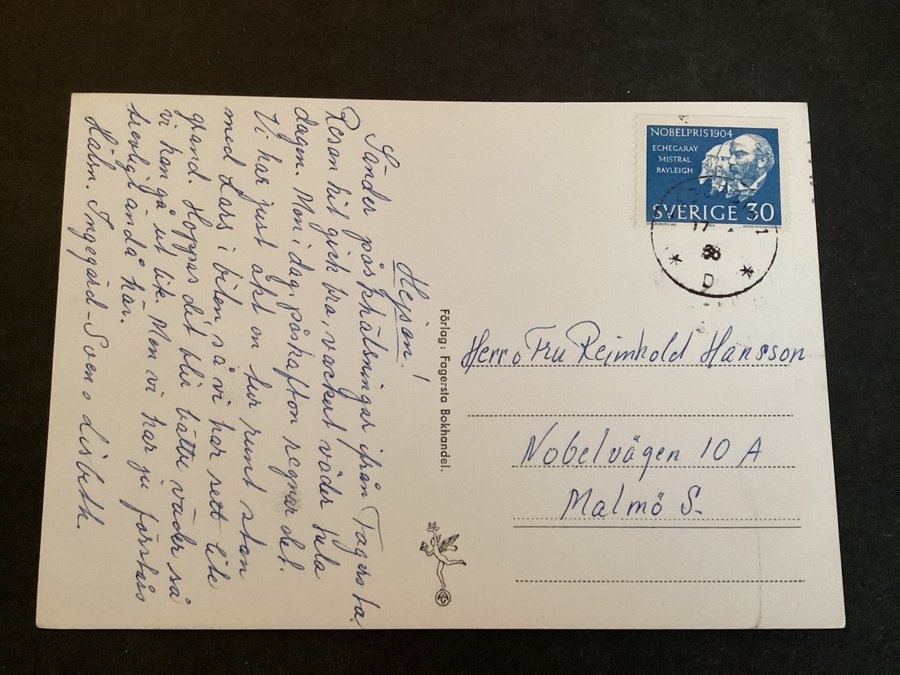 Hejsan!
Sänder påskhälsningar ifrån Fagersta.
Resan hit gick bra, vackert väder hela
dagen. Men i dag, påskafton regnar det.
Vi har just åkt en tur runt stan
med Lars i bilen, så vi har sett lite
grand. Hoppas det blir bättre väder så
vi kan gå ut lite. Men vi har ju förstås
trevligt ändå här.
Hälsn. Ingegärd-Sven o Lisbeth.
Förlag: Fagersta Bokhandel.
NOBELPRIS 1904
ECHEGARAY
MISTRAL
RAYLEIGH
SVERIGE 30
17
D
Herr o Fru Reimhold Hansson
Nobelvägen 10 A
Malmö S.